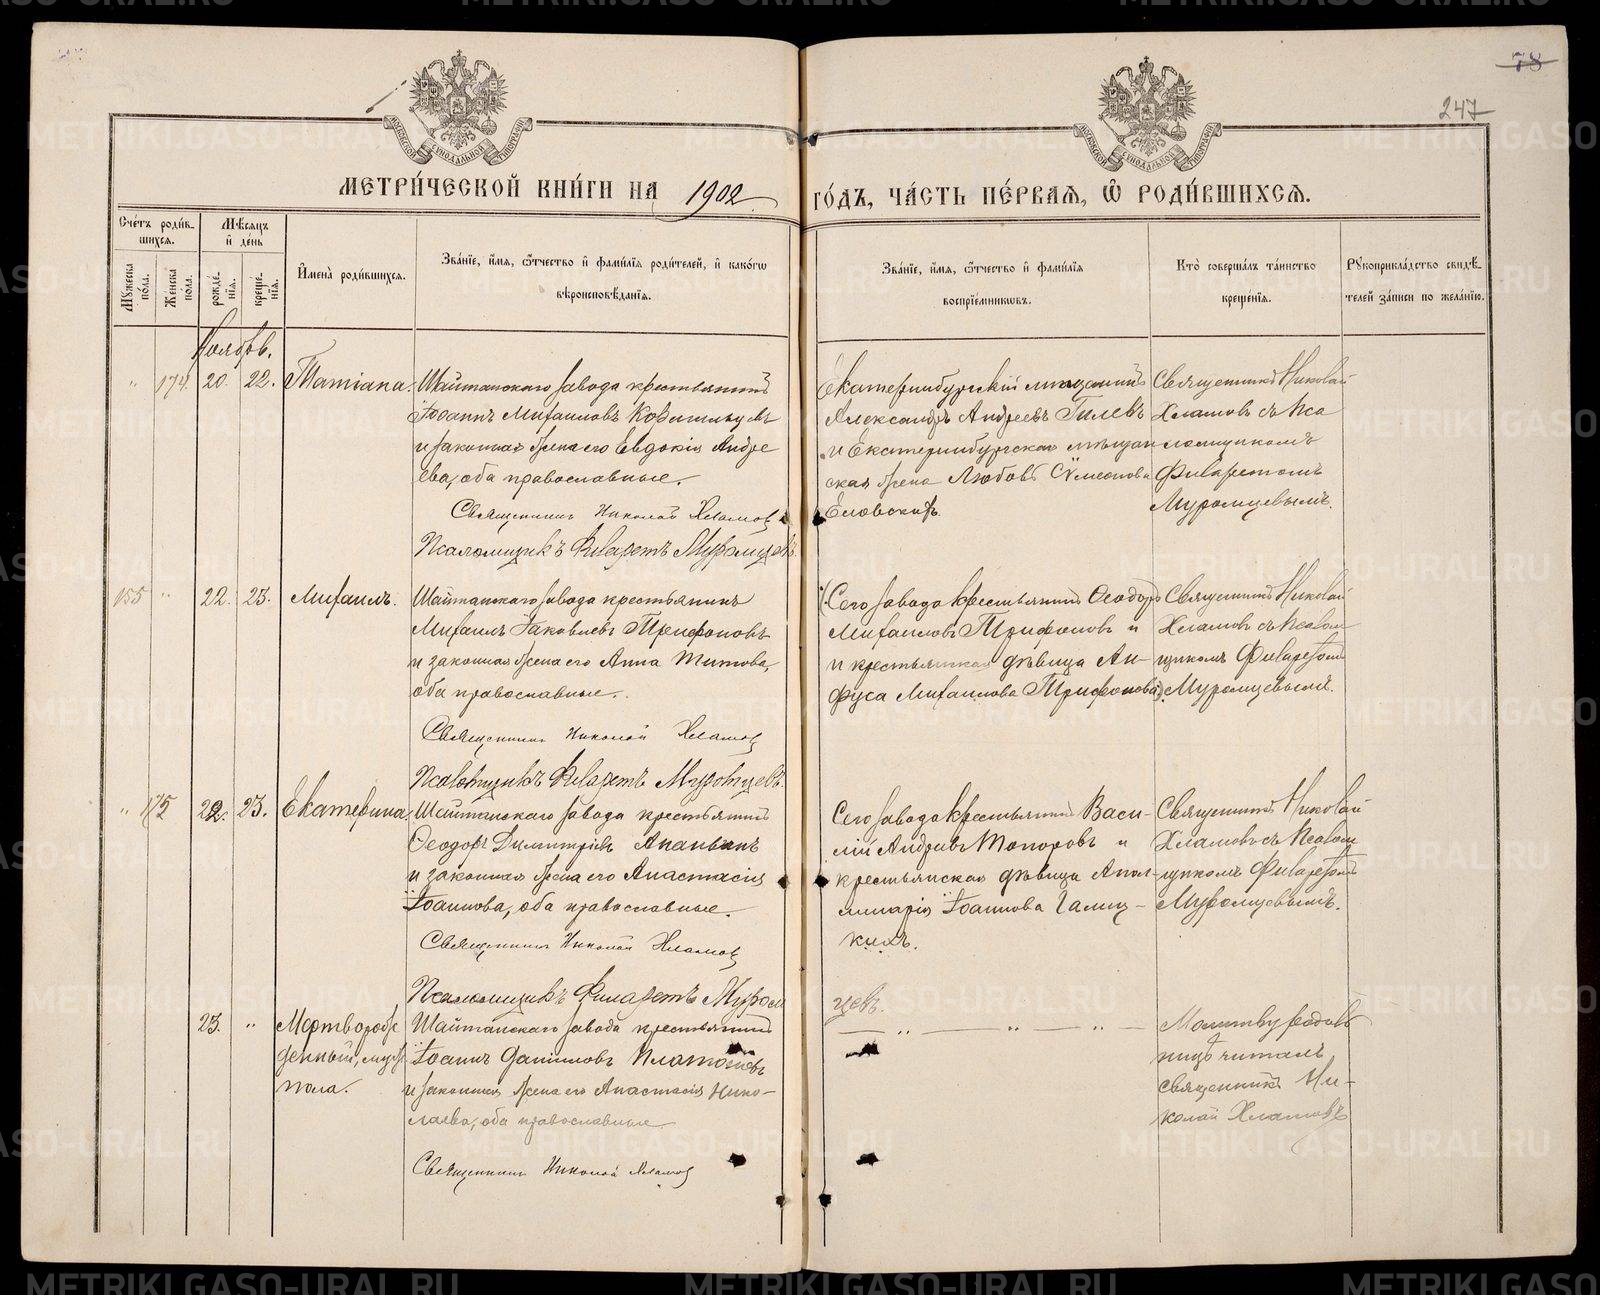 78
247
МОСКОВСКОЙ СѴНОДАЛЬНОЙ ТИПОГРАФІИ
МОСКОВСКОЙ СѴНОДАЛЬНОЙ ТИПОГРАФІИ
МЕТРИ́ЧЕСКОЙ КНИ́ГИ НА 1902
ГО́ДЪ, ЧА́СТЬ ПЕ́РВАЯ, Ѡ҆ РОДИ́ВШИХСЯ.
Сче́тъ роди́в-
шихся.
Мѣ́сяцъ
и҆ де́нь
Му́жеска по́ла.
Же́нска по́ла.
рожде́-
нїя.
креще́-
нїя.
И҆мена̀ роди́вшихся.
Зва́нїе, и҆́мя, ѻ҆́тчество и҆ фами́лїя роди́телей, и҆ како́гѡ
вѣроисповѣ́данїя.
Зва́нїе, и҆́мя, ѻ҆́тчество и҆ фами́лїя
воспрїе́мниковъ.
Кто̀ соверша́лъ та́инство
креще́нїя.
Рꙋкоприкла́дство свидѣ́-
телей за́писи по жела́нїю.
Ноябрь.
" 174. 20. 22. Татіана.
Шайтанскаго завода крестьянинъ
Іоаннъ Михаиловъ
и законная жена его Евдокія Андре
ева, оба православные.
Священникъ Николай Хламов
Псаломщикъ Филаретъ Муромцевъ
Екатеринбургскій мѣщанинъ
Александръ Андреевъ Гилевъ
и Екатеринбургская мѣщан
ская жена Любовь Сѵмеонова
Еловскихъ.
Священникъ Николай
Хламовъ съ Пса
ломщикомъ
Филаретомъ
Муромцевымъ.
155 " 22. 23. Михаилъ.
Шайтанскаго завода крестьянинъ
Михаилъ Іаковлевъ Трифоновъ
и законная жена его Анна Титова,
оба православные.
Священникъ Николай Хламов
Псаломщикъ Филаретъ Муромцевъ.
Сего завода крестьянинъ Ѳеодоръ
Михаиловъ Трифоновъ и
и крестьянская дѣвица Ан-
фуса Михаилова Трифонова.
Священникъ Николай
Хламовъ съ Псалом
щикомъ Филаретомъ
Муромцевымъ.
" 175 22. 23. Екатерина.
Шайтанскаго завода крестьянинъ
Ѳеодоръ Димитріевъ Ананьинъ
и законная жена его Анастасія
Іоаннова, оба православные.
Священникъ Николай Хламов
Псаломщикъ Филаретъ Муром
цевъ.
Сего завода крестьянинъ Васи-
лій Андреевъ Топоровъ и
крестьянская дѣвица Апол-
линарія Іоаннова Галиц-
кихъ.
Священникъ Николай
Хламовъ съ Псалом
щикомъ Филаретомъ
Муромцевымъ.
23. " Мертворож
денный, муж.
пола.
Шайтанскаго завода крестьянинъ
Іоаннъ Даниловъ Платоновъ
и законная жена его Анастасія Нико-
лаева, оба православные.
Священникъ Николай Хламов
— " — " — " —
Молитву родиль
ницѣ читалъ
священникъ Ни-
колай Хламовъ